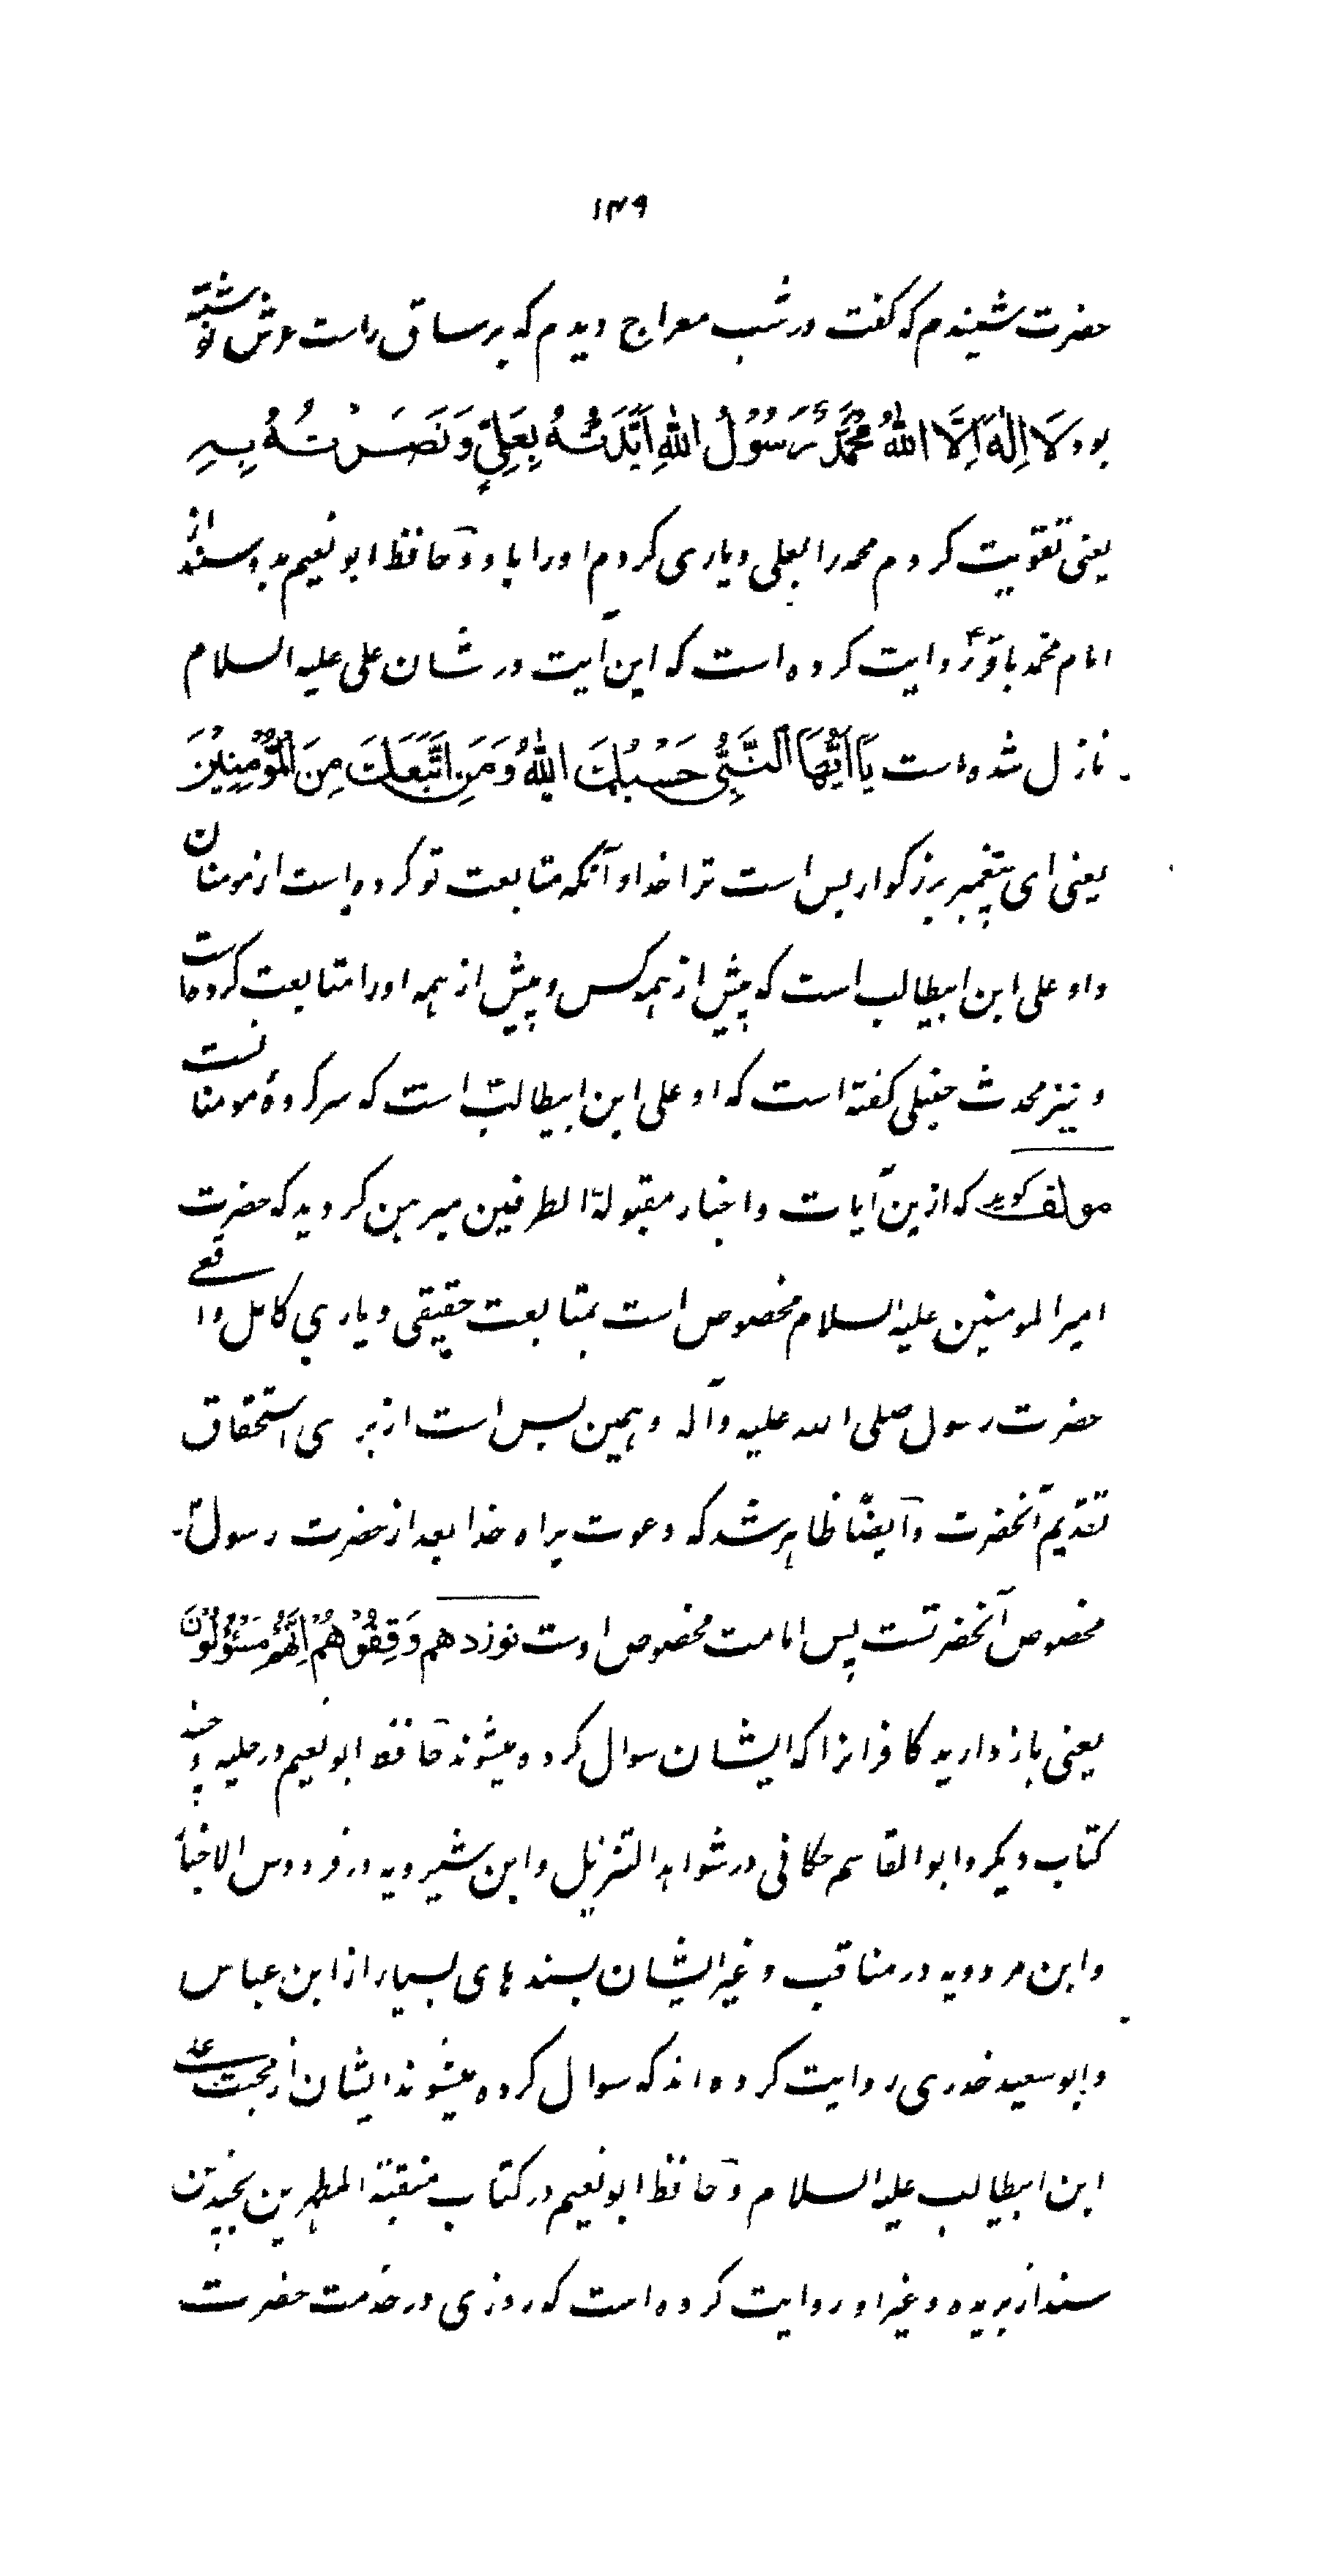 ۱۴۹
حضرت شنیدم که گفت در شب معراج دیدم که بر ساق راست عرش نوشته
بود لَا اِلٰهَ اِلَّا اللهُ مُحَمَّدٌ رَسُوْلُ اللهِ اَیَّدَتُهُ بِعَلِیٍّ وَنَصَرْتُهُ بِهِ
یعنی تقویت کردم محمد را بعلی و یاری کردم اورا باو و حافظ ابو نعیم بدو سند از
امام محمد باقرؑ روایت کرده است که این آیت در شان علی علیه السلام
نازل شده است یَا اَیُّهَا النَّبِیُّ حَسْبُكَ اللهُ وَمَنِ اتَّبَعَكَ مِنَ الْمُؤْمِنِیْنَ
یعنی ای پیغمبر بزرگوار بس است ترا خدا و آنکه متابعت تو کرده است از مومنان
و او علی ابن ابیطالب است که پیش از همه کس و پیش از همه اورا متابعت کرده است
و نیز محدث حنبلی گفته است که او علی ابن ابیطالب است که سرکردهٔ مومنانست
مولف گوید که ازین آیات و اخبار مقبولة الطرفین مبرهن گردید که حضرت
امیر المومنین علیه السلام مخصوص است بمتابعت حقیقی و یاری کامل واقعی
حضرت رسول صلی الله علیه وآله و همین بس است از برای استحقاق
تقدیم آنحضرت و آیضًا ظاهر شد که دعوت براه خدا بعد از حضرت رسول
مخصوص آنحضرتست پس امامت مخصوص اوست نوزدهم وَقِفُوْهُمْ اِنَّهُمْ مَسْئُوْلُوْنَ
یعنی باز دارید کافرانرا که ایشان سوال کرده میشوند حافظ ابو نعیم در حلیه و چند
کتاب دیگر و ابو القاسم حسکانی در شواهد التنزیل و ابن شیرویه در فردوس الاخبار
و ابن مردویه در مناقب و غیر ایشان بسند های بسیار از ابن عباس
و ابو سعید خدری روایت کرده اند که سوال کرده میشوند ایشان از محبت علی
ابن ابیطالب علیه السلام و حافظ ابو نعیم در کتاب منقبة المطهرین بچندین
سند از بریده و غیر او روایت کرده است که روزی در خدمت حضرت